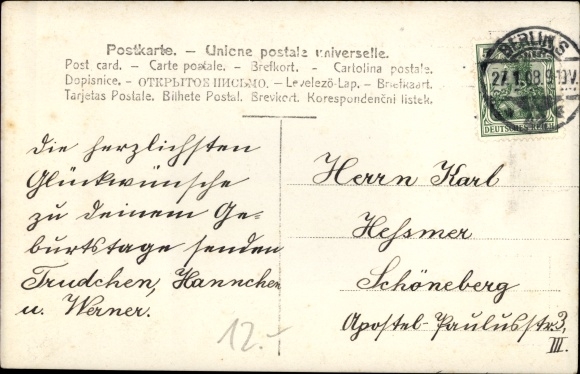 Postkarte. – Unione postale universelle.
Post card. – Carte postale. – Brefkort. – Cartolina postale.
Dopisnice. – ОТКРЫТОЕ ПИСЬМО. – Levelező-Lap. – Briefkaart.
Tarjetas Postale. Bilhete Postal. Brevkort. Korespondenční listek.
BERLIN S
27.1.08.9-10V.
DEUTSCHES REICH
Die herzlichsten
Glückwünsche
zu deinem Ge-
burtstage senden
Trudchen, Hannchen
u. Werner.
Herrn Karl
Heßmer
Schöneberg
Apostel-Paulusstr. 3,
III.
12.-